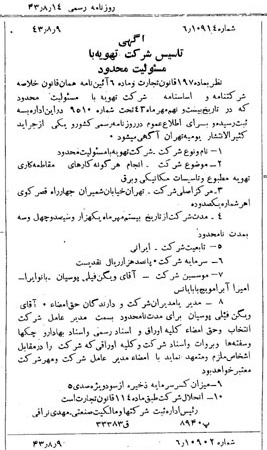 روزنامه رسمی ۴۳ر۸ر۱۴
شماره ۶ر۱۰۹۱۴ ۴۳ر۸ر۹
آگهی
تاسیس شرکت تهویه با
مسئولیت محدود
نظر بماده ۱۹۷ قانون تجارت و ماده ۶ آئین‌نامه همان قانون خلاصه
شرکتنامه و اساسنامه شرکت تهویه با مسئولیت محدود
که در تاریخ بیست و نهم مهر ماه ۴۳ تحت شماره ۹۵۱۰ در این اداره به
ثبت رسیده و برای اطلاع عموم در روزنامه رسمی کشور و یکی از جراید
کثیرالانتشار یومیه تهران آگهی میشود
۱ - نام و نوع شرکت - شرکت تهویه با مسئولیت محدود
۲ - موضوع شرکت - انجام هر گونه کارهای مقاطعه‌کاری
تهویه مطبوع و تاسیسات مکانیکی و برق
۳ - مرکز اصلی شرکت - تهران خیابان شمیران چهارراه قصر کوی
اهر شماره یکصد و ده
۴ - مدت شرکت از تاریخ بیستم مهر ماه یکهزار و سیصد و چهل و سه
بمدت نامحدود
۵ - تابعیت شرکت - ایرانی
۶ - سرمایه شرکت - پانصد هزار ریال نقدیست
۷ - موسسین شرکت - آقای ویگن فیلی پوسیان - بانو ایرا -
امیرا آبراموویچ بابایانس
۸ - مدیر یا مدیران شرکت و دارندگان حق امضاء - آقای
ویگن فیلی پوسیان برای مدت نامحدود بسمت مدیر عامل شرکت
انتخاب و حق امضاء کلیه اوراق و اسناد رسمی و اسناد بهادار و چکها
و سفته‌ها و بروات و اسناد شرکت و کلیه اوراقی که شرکت را در مقابل
اشخاص ملزم و متعهد نماید با امضاء مدیر عامل شرکت و مهر شرکت
معتبر خواهد بود
۹ - میزان کسر سرمایه ذخیره از سود ویژه صدی ۵
۱۰ - انحلال شرکت طبق ماده ۱۱۴ قانون تجارت است
رئیس اداره ثبت شرکتها و مالکیت صنعتی - مهدی نراقی
پ ۸۹۴۰ ف ۳۳۳۸۳
شماره ۶ر۱۰۹۰۲ ۴۳ر۸ر۹